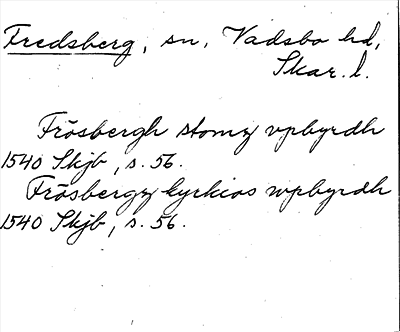 Fredsberg, sn, Vadsbo hd,
Skar. l.
Frösbergh stomz vpbyrdh
1540 Skjb, s. 56.
Frösbergz kyrkios wpbyrdh
1540 Skjb, s. 56.